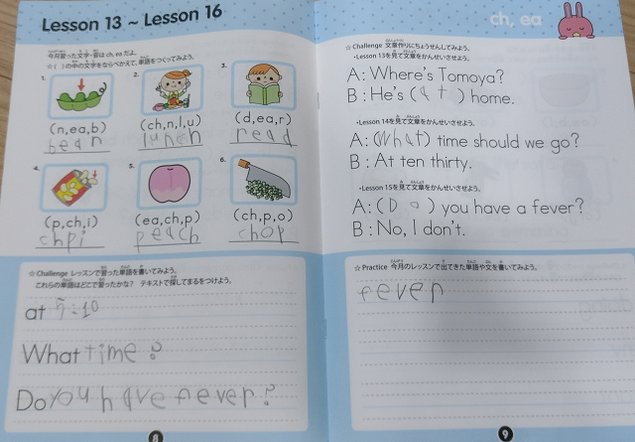 Lesson 13 ~ Lesson 16
今月習った文字・音は ch, ea だよ。
☆( )の中の文字をならべかえて、単語をつくってみよう。
1.
2.
3.
(n,ea,b)
(ch,n,l,u)
(d,ea,r)
bean
lunch
read
4.
5.
6.
(p,ch,i)
(ea,ch,p)
(ch,p,o)
chpi
peach
chop
☆Challenge レッスンで習った単語を書いてみよう。
これらの単語はどこで習ったかな? テキストで探してまるをつけよう。
at 5:10
What time?
Do you have fever?
8
ch, ea
☆Challenge 文章作りにちょうせんしてみよう。
・Lesson 13を見て文章をかんせいさせよう。
A: Where's Tomoya?
B: He's (at) home.
・Lesson 14を見て文章をかんせいさせよう。
A: (What) time should we go?
B: At ten thirty.
・Lesson 15を見て文章をかんせいさせよう。
A: (Do) you have a fever?
B: No, I don't.
☆Practice 今月のレッスンで出てきた単語や文を書いてみよう。
fever
9